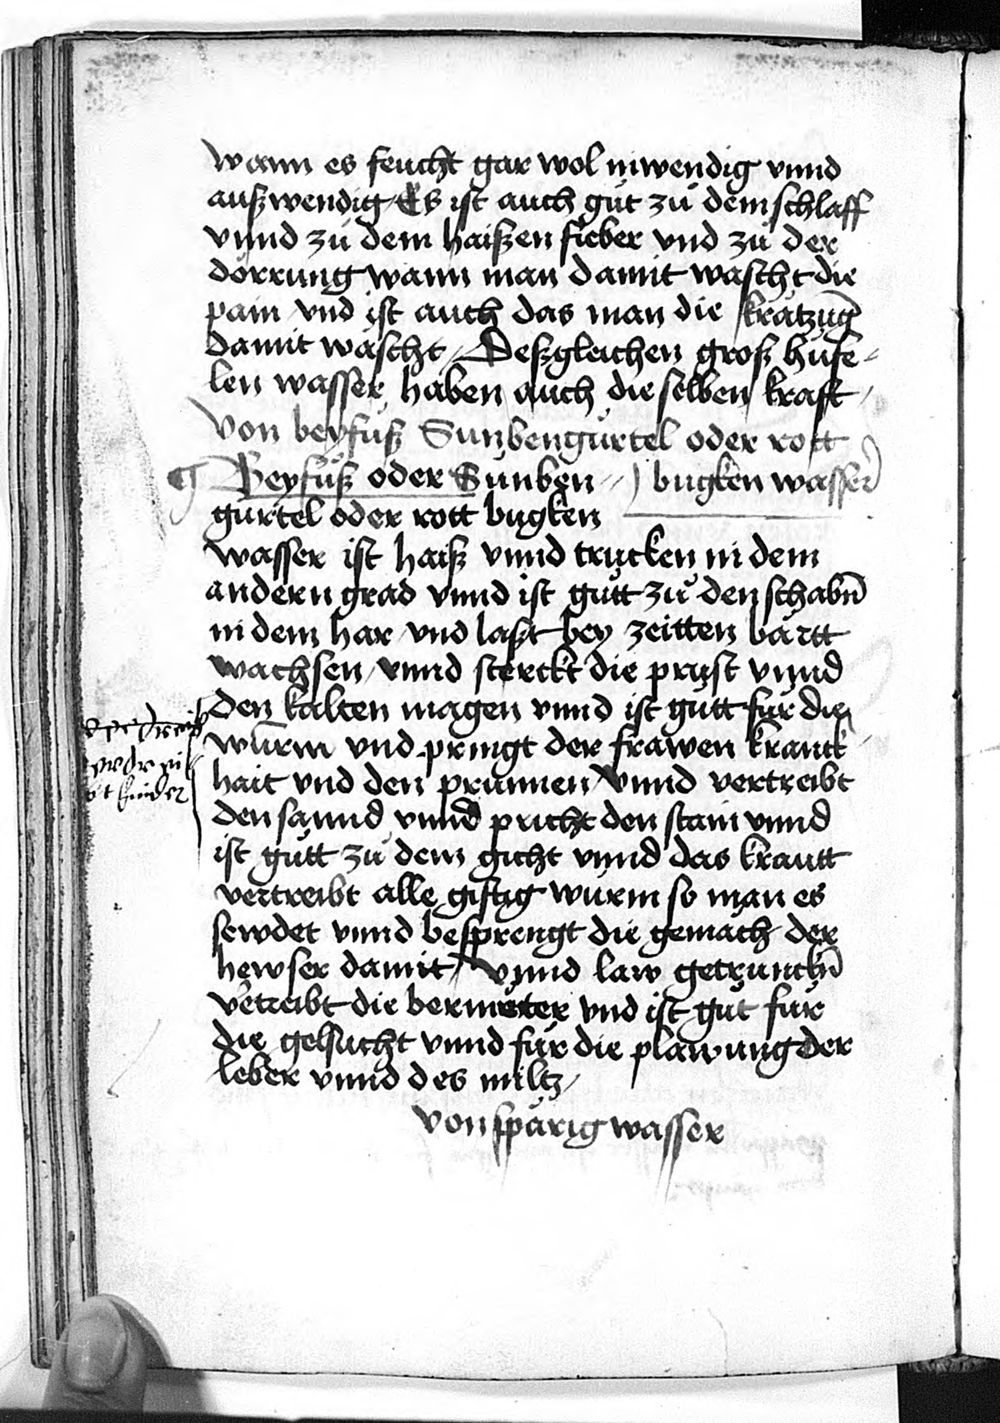 wann es feucht gar wol inwendig vnnd
außwendig Es ist auch gůt zů dem schlaff
vnnd zů dem haißen fieber vnd zů der
dörrung wann man damit wascht die
pain vnd ist auch das man die kratzūg
damit wascht / Deßgleichen groß hüfe-
len wasser haben auch die selben kraft /
Von beyfůß Sunbengürtel oder rott
Beyfůß oder Sunben- ) bugken wasser
gürtel oder rott bugken
wasser ist haiß vnnd trucken in dem
andern grad vnnd ist gůtt zů den schabn̄
in dem har vnd laßt bey zeitten bärtt
wachsen / vnnd sterckt die prust vnnd
den kalten magen vnnd ist gůtt für die
würm vnd pringt der frawen kranck-
hait vnd den prunnen / Vnnd vertreibt
den sannd vnnd pricht den stain vnnd
ist gůtt zů dem gicht vnnd das krautt
vertreibt alle gifftig würm so man es
sewdet vnnd besprengt die gemach der
hewser damit / Vnnd law getrunckn̄
vetreibt die bermüter vnd ist gůt für
die gelsucht vnnd für die plawung der
leber vnnd des miltz /
von spärig wasser
kinder